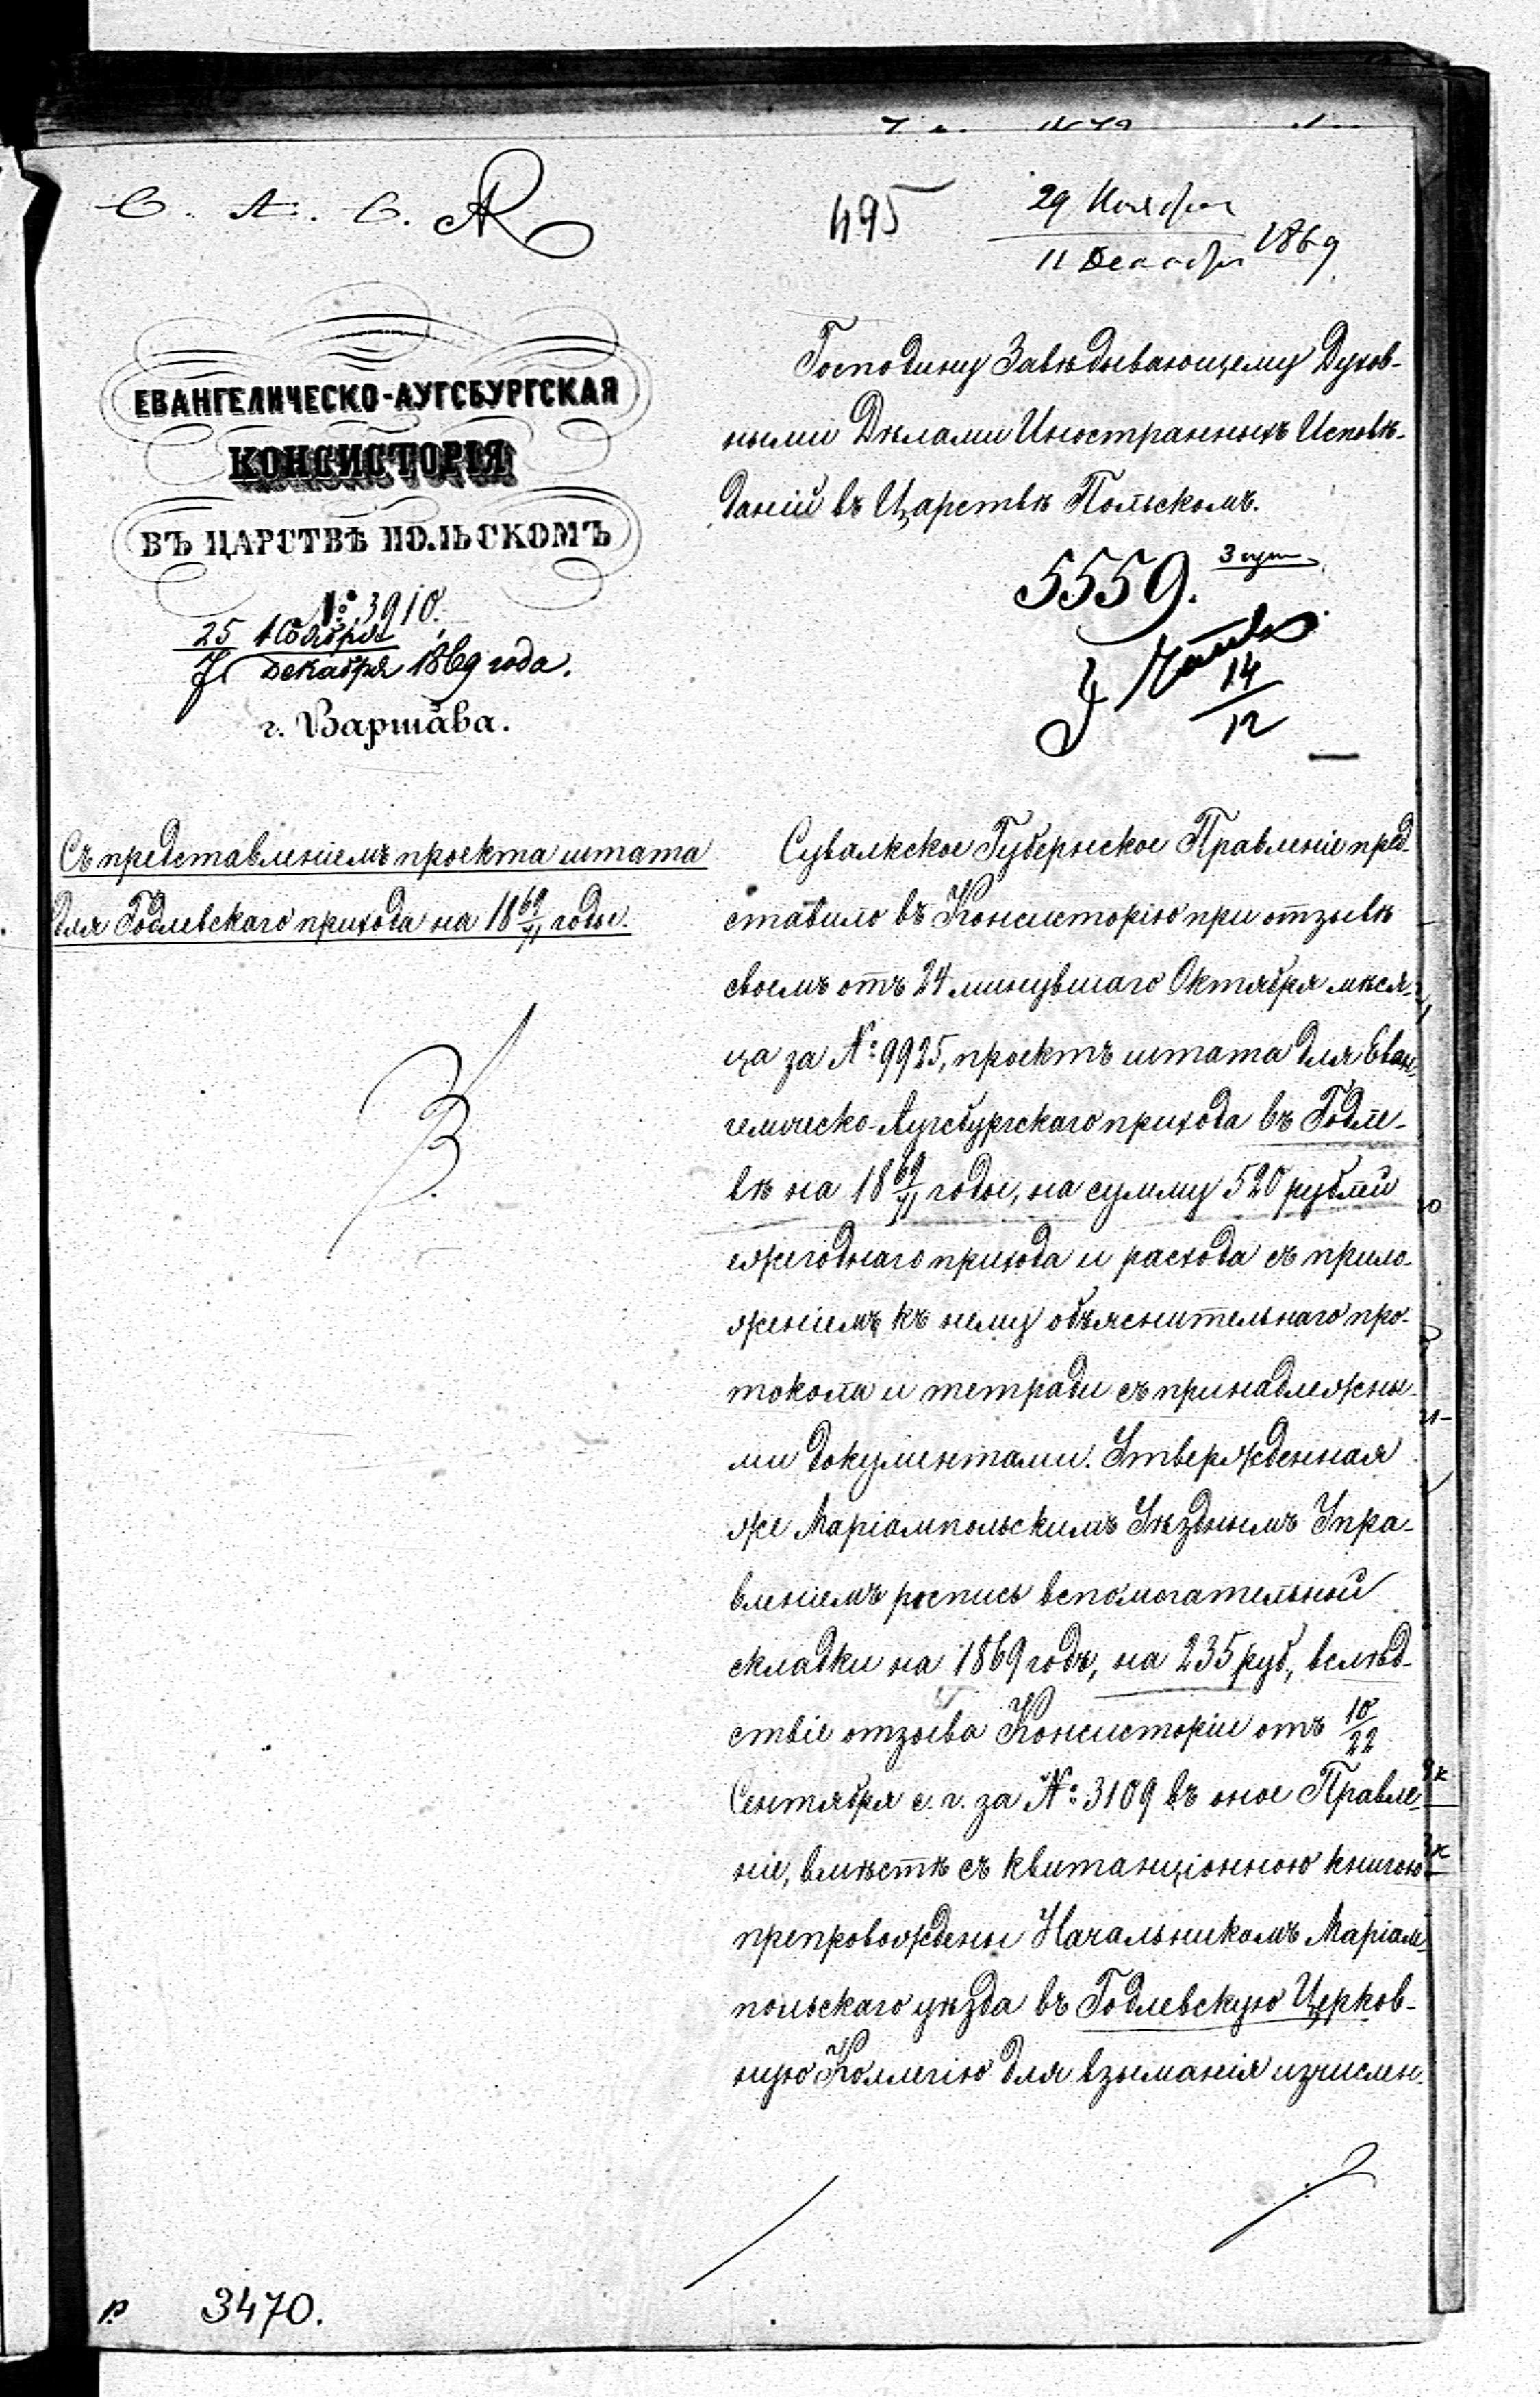 С. А. С.
495
29 Ноября
11 Декабря 1869
ЕВАНГЕЛИЧЕСКО-АУГСБУРГСКАЯ
КОНСИСТОРІЯ
ВЪ ЦАРСТВѢ ПОЛЬСКОМЪ
№ 3910.
25 Ноября
7 Декабря 1869 года.
г. Варшава.
Съ представленіемъ проекта штата
для Годлевскаго прихода на 18 69/71 годы.
Господину Завѣдывающему Духов-
ными Дѣлами Иностранныхъ Исповѣ-
даній въ Царствѣ Польскомъ.
5559.
14
12
Сувалкское Губернское Правленіе пред-
ставило въ Консисторію при отзывѣ
своемъ отъ 24 минувшаго Октября мѣся-
ца за №: 9925, проектъ штата для Еван-
гелическо-Аугсбургскаго прихода въ Годле-
вѣ на 18 69/71 годы, на сумму 520 рублей
ежегоднаго прихода и расхода съ прило-
женіемъ къ нему объяснительнаго про-
токола и тетради съ принадлежны-
ми документами. Утвержденная
же Маріампольскимъ Уѣзднымъ Упра-
вленіемъ роспись вспомогательной
складки на 1869 годъ, на 235 руб., вслѣд-
ствіе отзыва Консисторіи отъ 10/22
Сентября с. г. за №: 3109 въ оное Правле-
ніе, вмѣстѣ съ квитанціонною книгою
препровождены Начальникомъ Маріам-
польскаго уѣзда въ Годлевскую Церков-
ную Коллегію для взыманія изчислен-
3470.